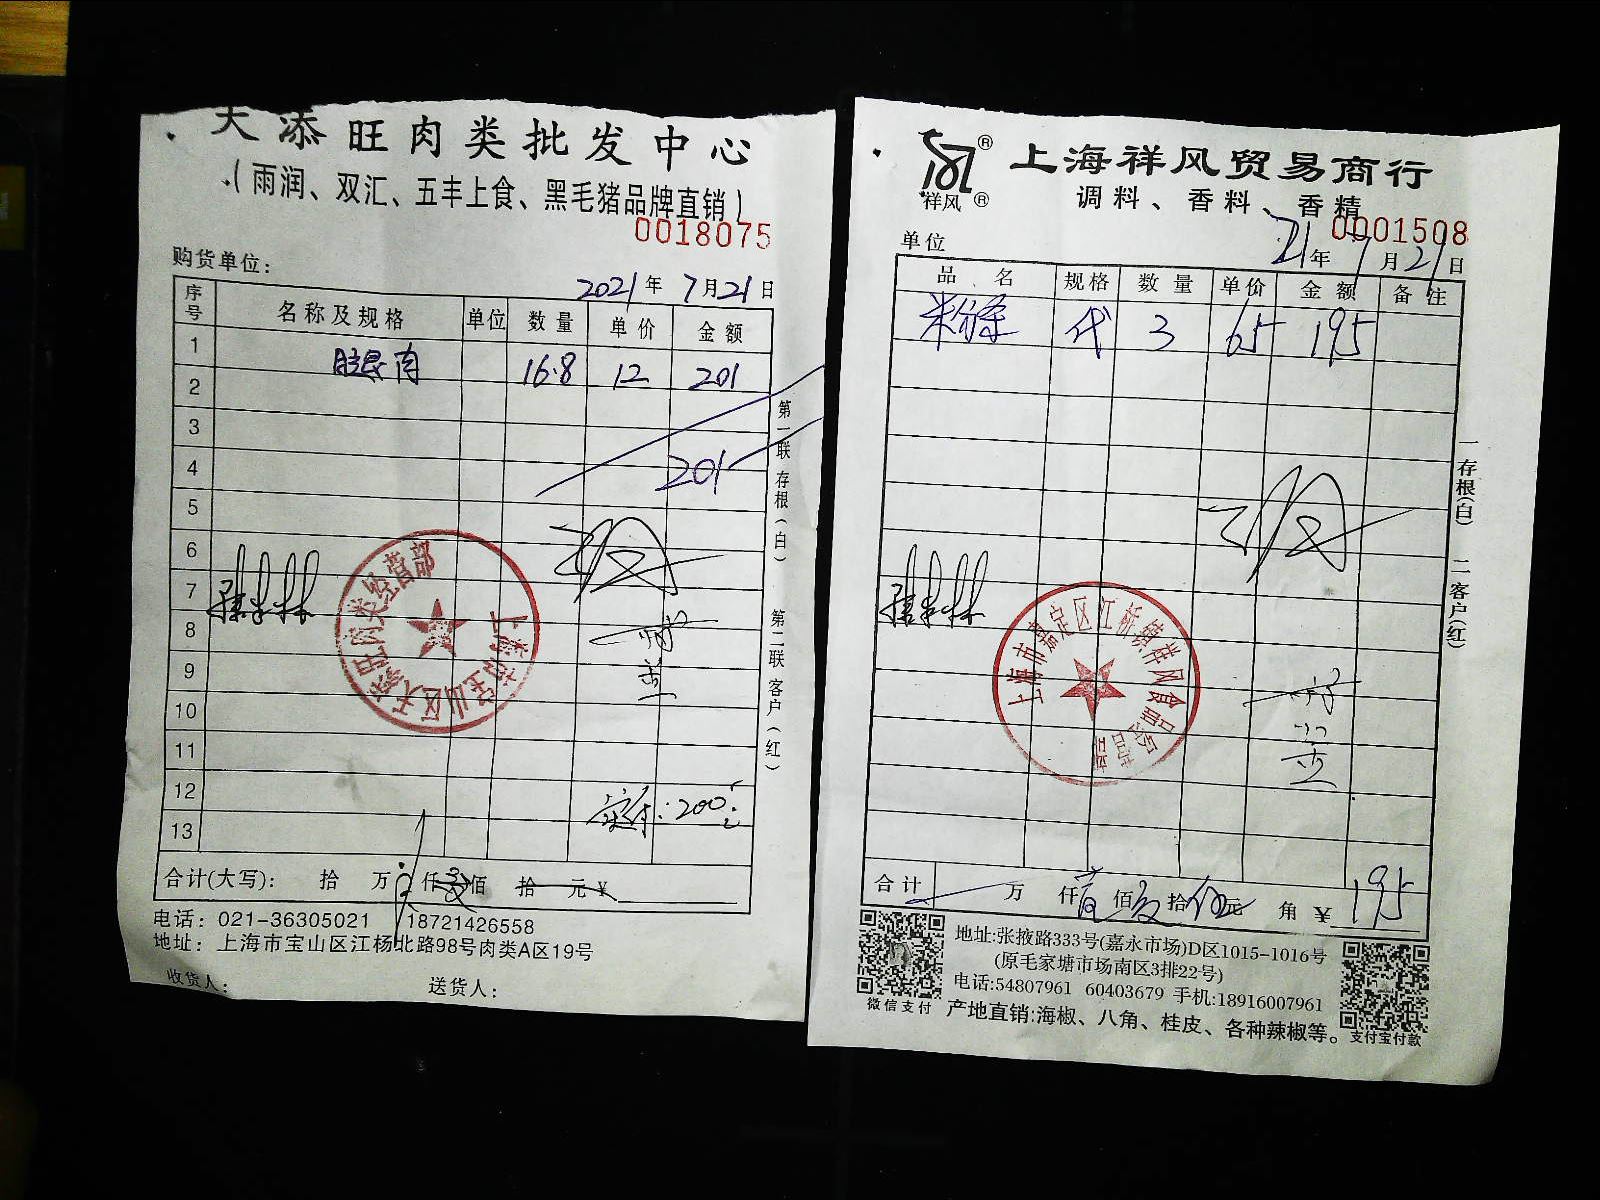 天添旺肉类批发中心
（雨润、双汇、五丰上食、黑毛猪品牌直销）
0018075
购货单位：
2021年7月21日
序号 名称及规格 单位 数量 单价 金额
1 腿肉 16.8 12 201
2
3
4 201
5
6
7
8
9
10
11
12 实付：200元
13
合计(大写)： 拾 万 仟 佰 拾 元 ¥
电话：021-36305021 18721426558
地址：上海市宝山区江杨北路98号肉类A区19号
收货人： 送货人：
第一联 存根（白） 第二联 客户（红）
上海市宝山区天添旺肉类经营部
祥风
上海祥风贸易商行
调料、香料、香精
0001508
单位
21年7月21日
品名 规格 数量 单价 金额 备注
米线 代 3 65 195
一存根(白) 二客户(红)
上海市嘉定区江桥镇祥风食品经营部
合计 万 仟 壹佰 玖拾 伍元 角 ¥195
地址:张掖路333号(嘉永市场)D区1015-1016号
(原毛家塘市场南区3排22号)
电话:54807961 60403679 手机:18916007961
产地直销:海椒、八角、桂皮、各种辣椒等。
微信支付
支付宝付款